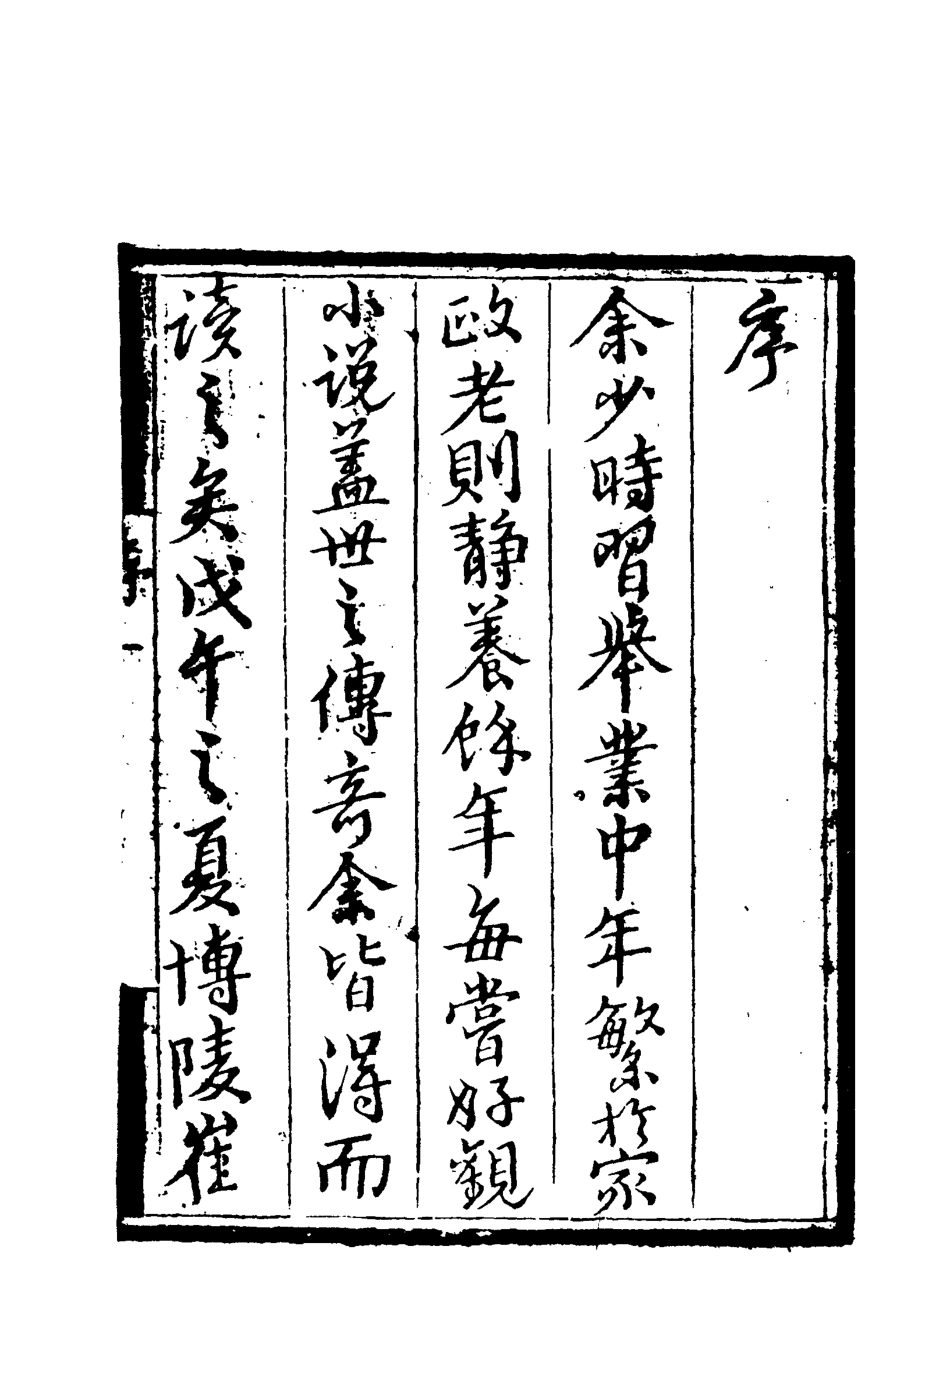 序
余少時習舉業中年繁於家
政老則静養餘年每嘗好觀
小说蓋世之傳竒余皆得而
读之矣戊午之夏博陵崔
序
一